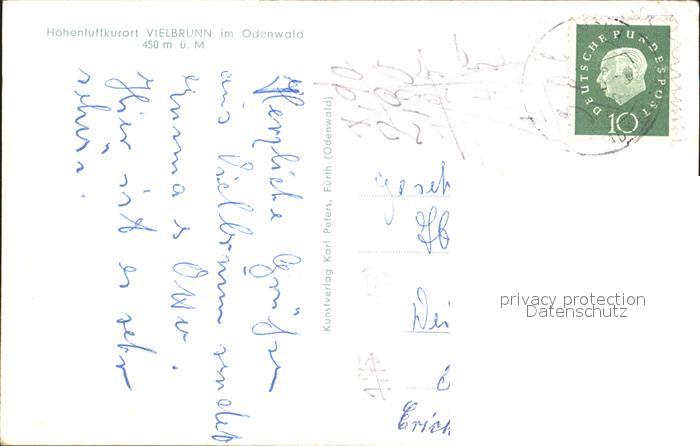 Höhenluftkurort VIELBRUNN im Odenwald
450 m ü. M
Herzliche Grüße
aus Vielbrunn sendet
Emma & Otto.
Hier ist es sehr
schön.
Kunstverlag Karl Peters, Fürth (Odenwald)
DEUTSCHE BUNDESPOST
10
privacy protection
Datenschutz